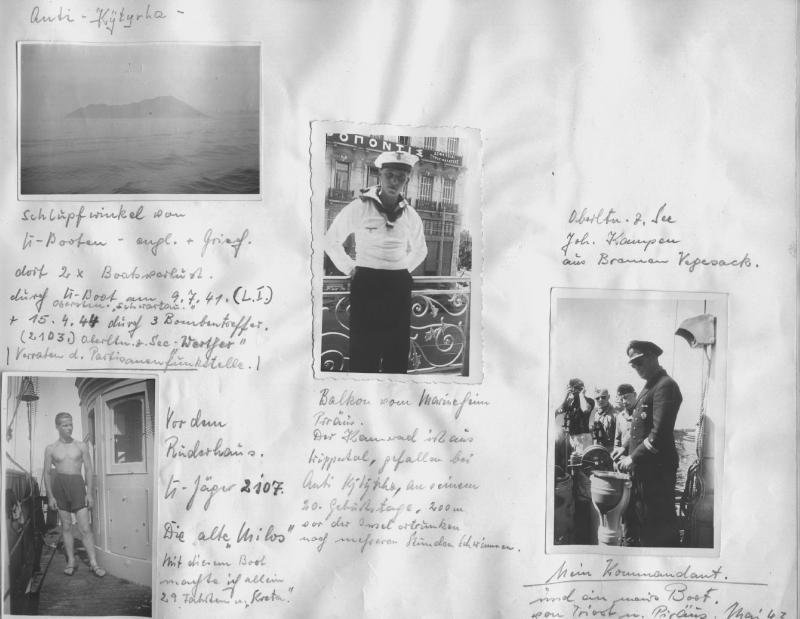 Anti - Kÿtyrha -
Schlupfwinkel von
U-Booten - engl. + Griech.
dort 2 x Bootsverlust.
durch U-Boot am 9.7.41. (L.I)
Oberstm. "Schwartau."
+ 15.4.44 durch 3 Bombentreffer.
(2103) Oberltn. z. See - Werther"
/ Verraten d. Partisanenfunkstelle. /
ΟΠΟΝΤΙΣ
Oberltn. z. See
Joh. Kampen
aus Bremen Vegesack.
Vor dem
Ruderhaus.
U-Jäger 2107.
Die alte "Milos"
Mit diesem Boot
machte ich allein
29 Fahrten n. "Kreta".
Balkon vom Marineheim
Piräus.
Der Kamerad ist aus
Wippertal, gefallen bei
Anti Kÿtyrha, an seinem
20. Geburtstage, 200 m
vor der Insel ertrunken
nach mehreren Stunden Schwimmen.
Mein Kommandant.
und ein neues Boot.
von Triest n. Piräus, Mai 43